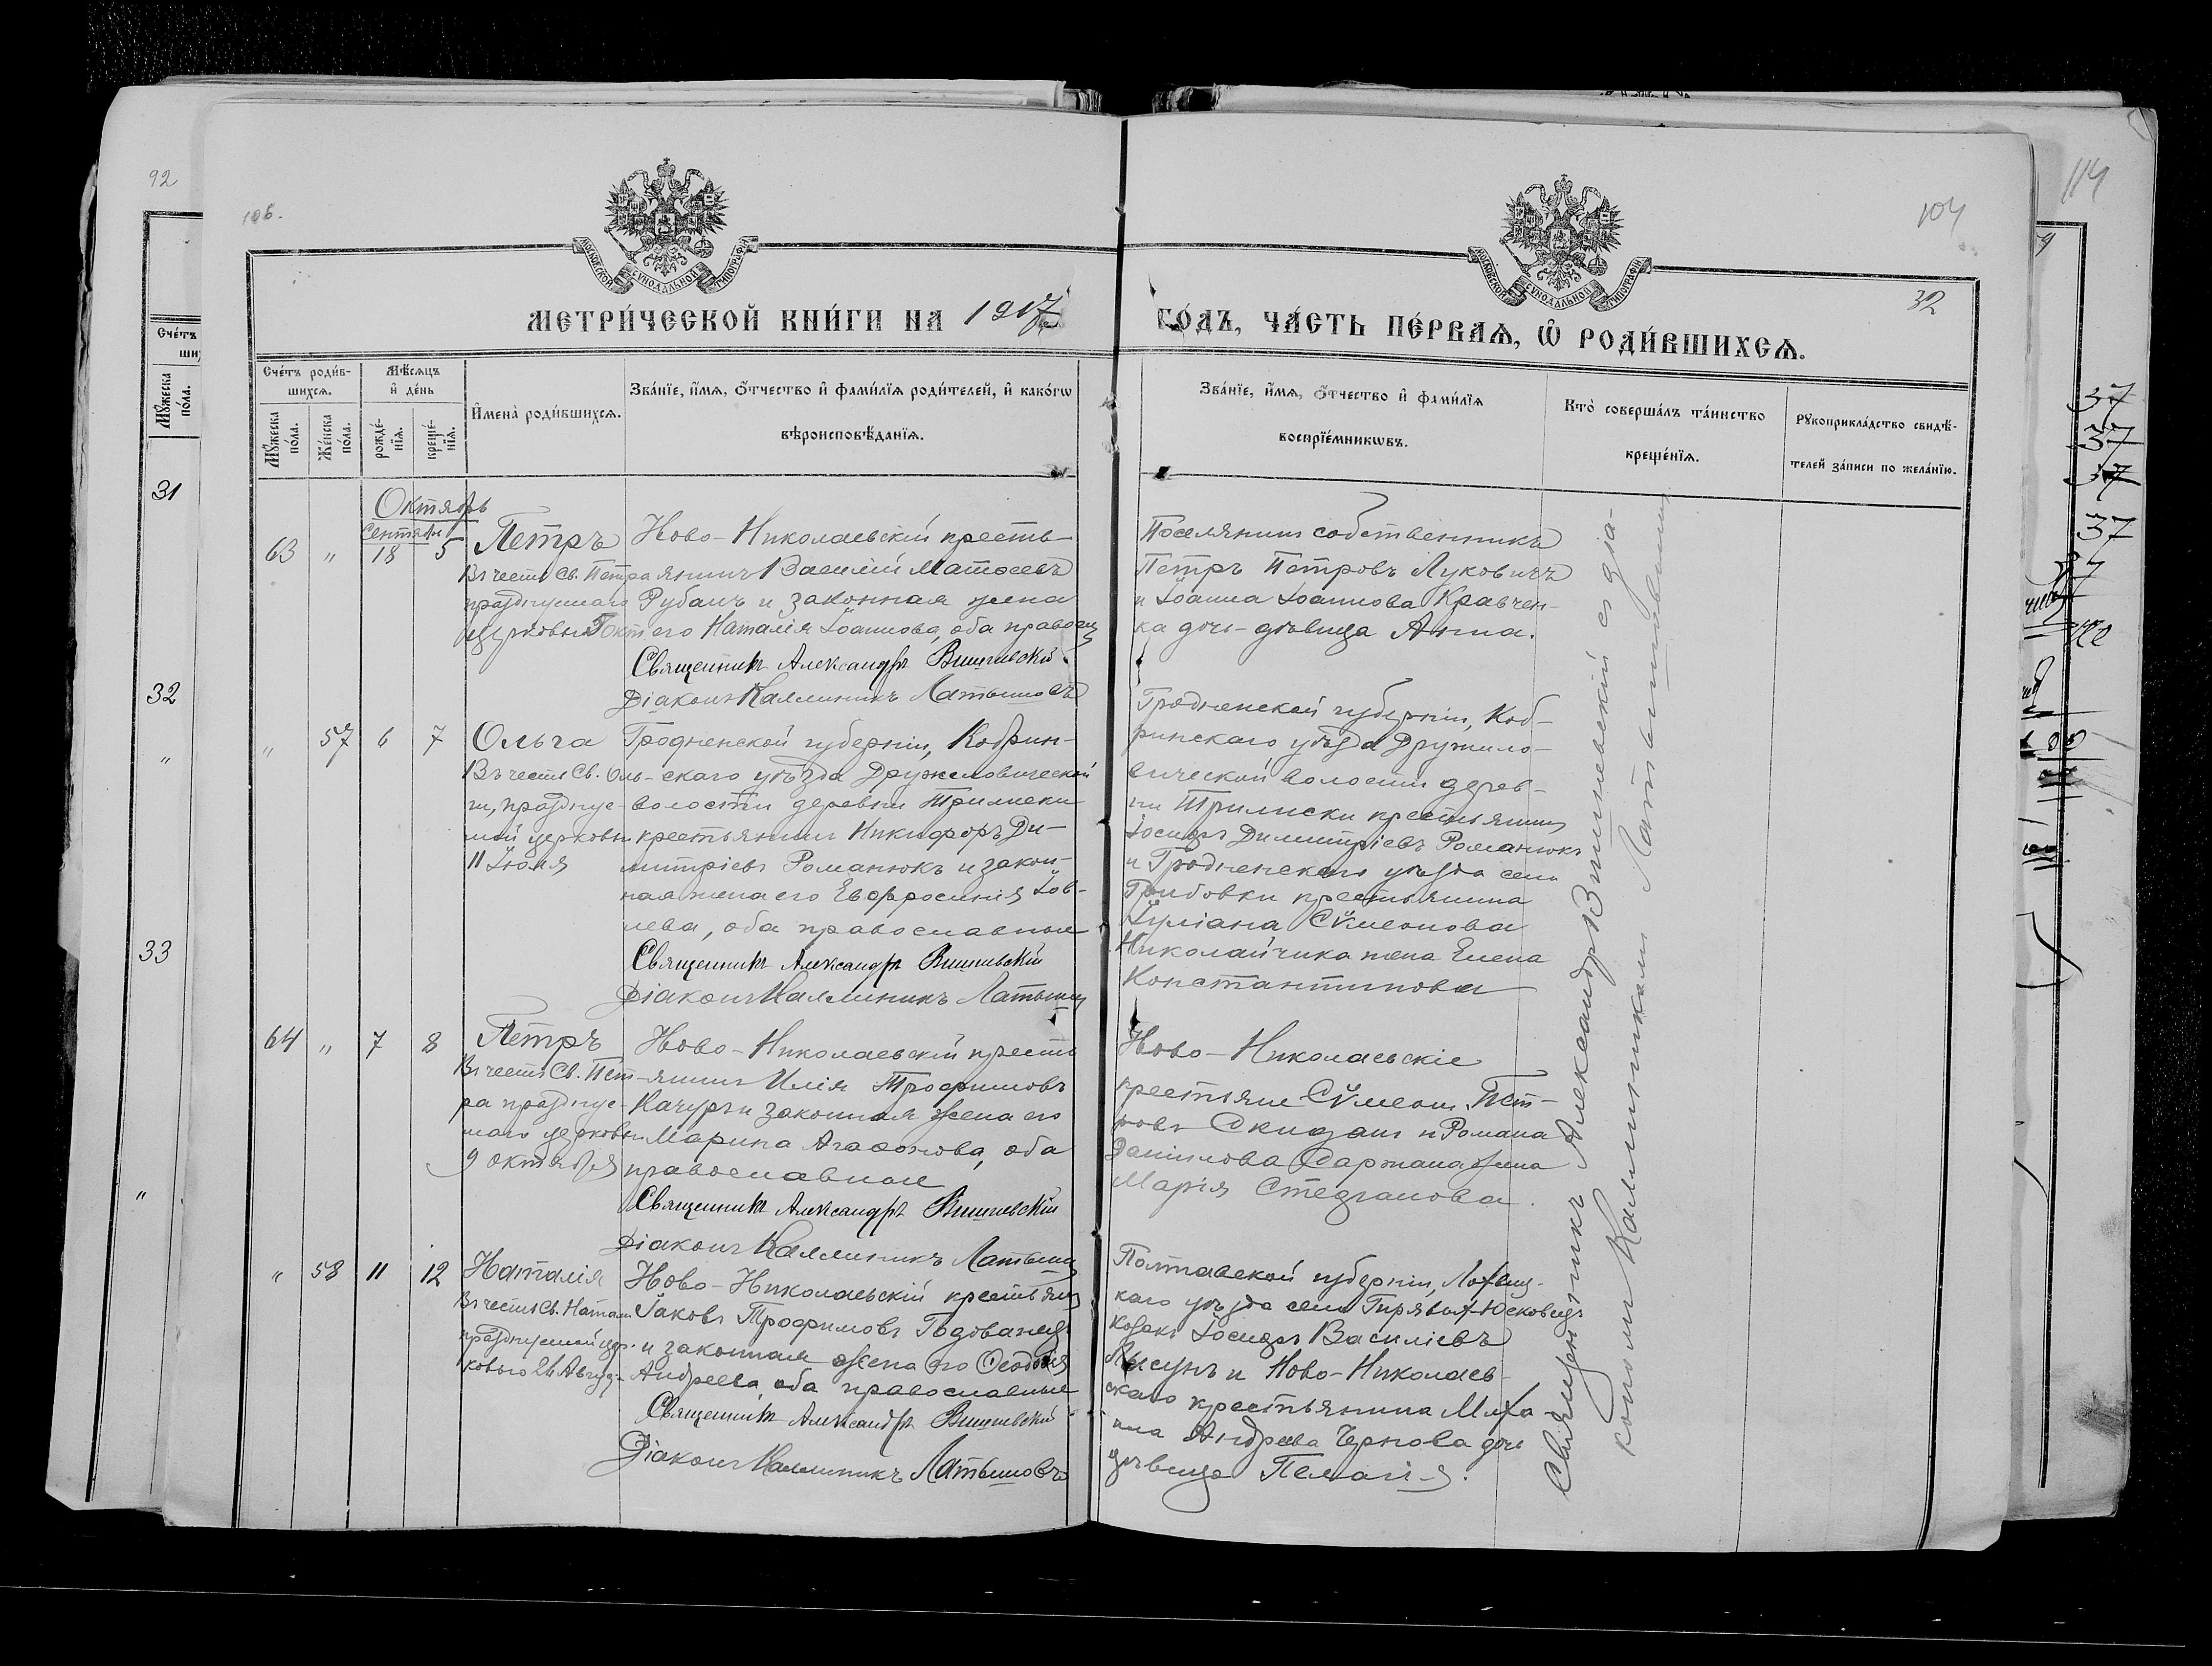 92
106.
104
114
32
МОСКОВСКОЙ СѴНОДАЛЬНОЙ ТИПОГРАФІИ
МОСКОВСКОЙ СѴНОДАЛЬНОЙ ТИПОГРАФІИ
МЕТРИ́ЧЕСКОЙ КНИ́ГИ НА 1917
ГО́ДЪ, ЧА́СТЬ ПЕ́РВАѦ, Ѿ РОДИ́ВШИХСѦ.
Сче́тъ роди́в-
шихсѧ.
Мꙋ́жеска по́ла.
Же́нска по́ла.
Мѣ́сѧцъ
и҆ де́нь
рожде́-нїѧ.
креще́-нїѧ.
И҆мена̀ роди́вшихсѧ.
Зва́нїе, и҆́мѧ, ѻ҆́тчество и҆ фами́лїѧ роди́телей, и҆ како́гѡ
вѣроисповѣ́данїѧ.
Зва́нїе, и҆́мѧ, ѻ҆́тчество и҆ фами́лїѧ
воспрїе́мникѡвъ.
Кто̀ соверша́лъ та́инство
креще́нїѧ.
Рꙋкоприкла́дство свидѣ́-
телей за́писи по жела́нїю.
31
32
"
33
"
37
37
37
37
Октябрь
Сентября
63 " 18 5
Петръ
Въ честь Св. Петра
празднуемаго
Ново-Николаевскій кресть-
янинъ Василій Матѳеевъ
Рубанъ и законная жена
его Наталія Іоаннова, оба правосл
Священникъ Александръ Вишневскій
Діаконъ Каллиникъ Латышовъ
Поселянинъ собственникъ
Петръ Петровъ Луковичъ
и Іоанна Іоаннова Кравчен-
ка дочь-дѣвица Анна.
" 57 6 7
Ольга
Въ честь Св. Оль-
ги, празднуе-
мой церковью
11 Іюля
Гродненской губерніи, Кобрин-
скаго уѣзда Дружиловической
волости деревни
крестьянинъ Никифоръ Ди-
митріевъ Романюкъ и закон-
ная жена его Евфросинія Іов-
лева, оба православные
Священникъ Александръ Вишневскій
Діаконъ Каллиникъ Латышов
Гродненской губерніи, Коб-
ринскаго уѣзда Дружило-
вической волости дерев-
ни крестьянинъ
Іосифъ Димитріевъ Романюкъ
и Гродненскаго уѣзда села
Грибовки крестьянина
Іуліана Сѵмеонова
Николайчика жена Елена
Константинова
64 " 7 8
Петръ
Въ честь Св. Пет-
ра праздnуе-
маго церковью
9 октября
Ново-Николаевскій кресть
-янинъ Илія Трофимовъ
Качуръ и законная жена его
Марина Агафонова, оба
православные
Священникъ Александръ Вишневскій
Діаконъ Каллиникъ Латышов
Ново-Николаевскіе
крестьяне Сѵмеонъ Пет-
ровъ Скиданъ и Романа
Даніилова жена
Марія Стефанова.
" 58 11 12
Наталія
Въ честь Св. Натал
празднуемой цер-
ковью 26 Авгус-
Ново-Николаевскій крестьянин
Іаковъ Трофимовъ Годованецъ
и законная жена его Ѳеодосія
Андреева, оба православные
Священникъ Александръ Вишневскій
Діаконъ Каллиникъ Латышовъ
Полтавской губерніи, Лохвиц-
каго уѣзда села Гирявыхъ-Юсковецъ
козакъ Іосифъ Василіевъ
Лысунъ и Ново-Николаев-
скаго крестьянина Миха-
ила Андреева Чернова дочь
дѣвица Пелагія.
Священникъ Александръ Вишневскій съ діа-
кономъ Каллиникомъ Латышовымъ